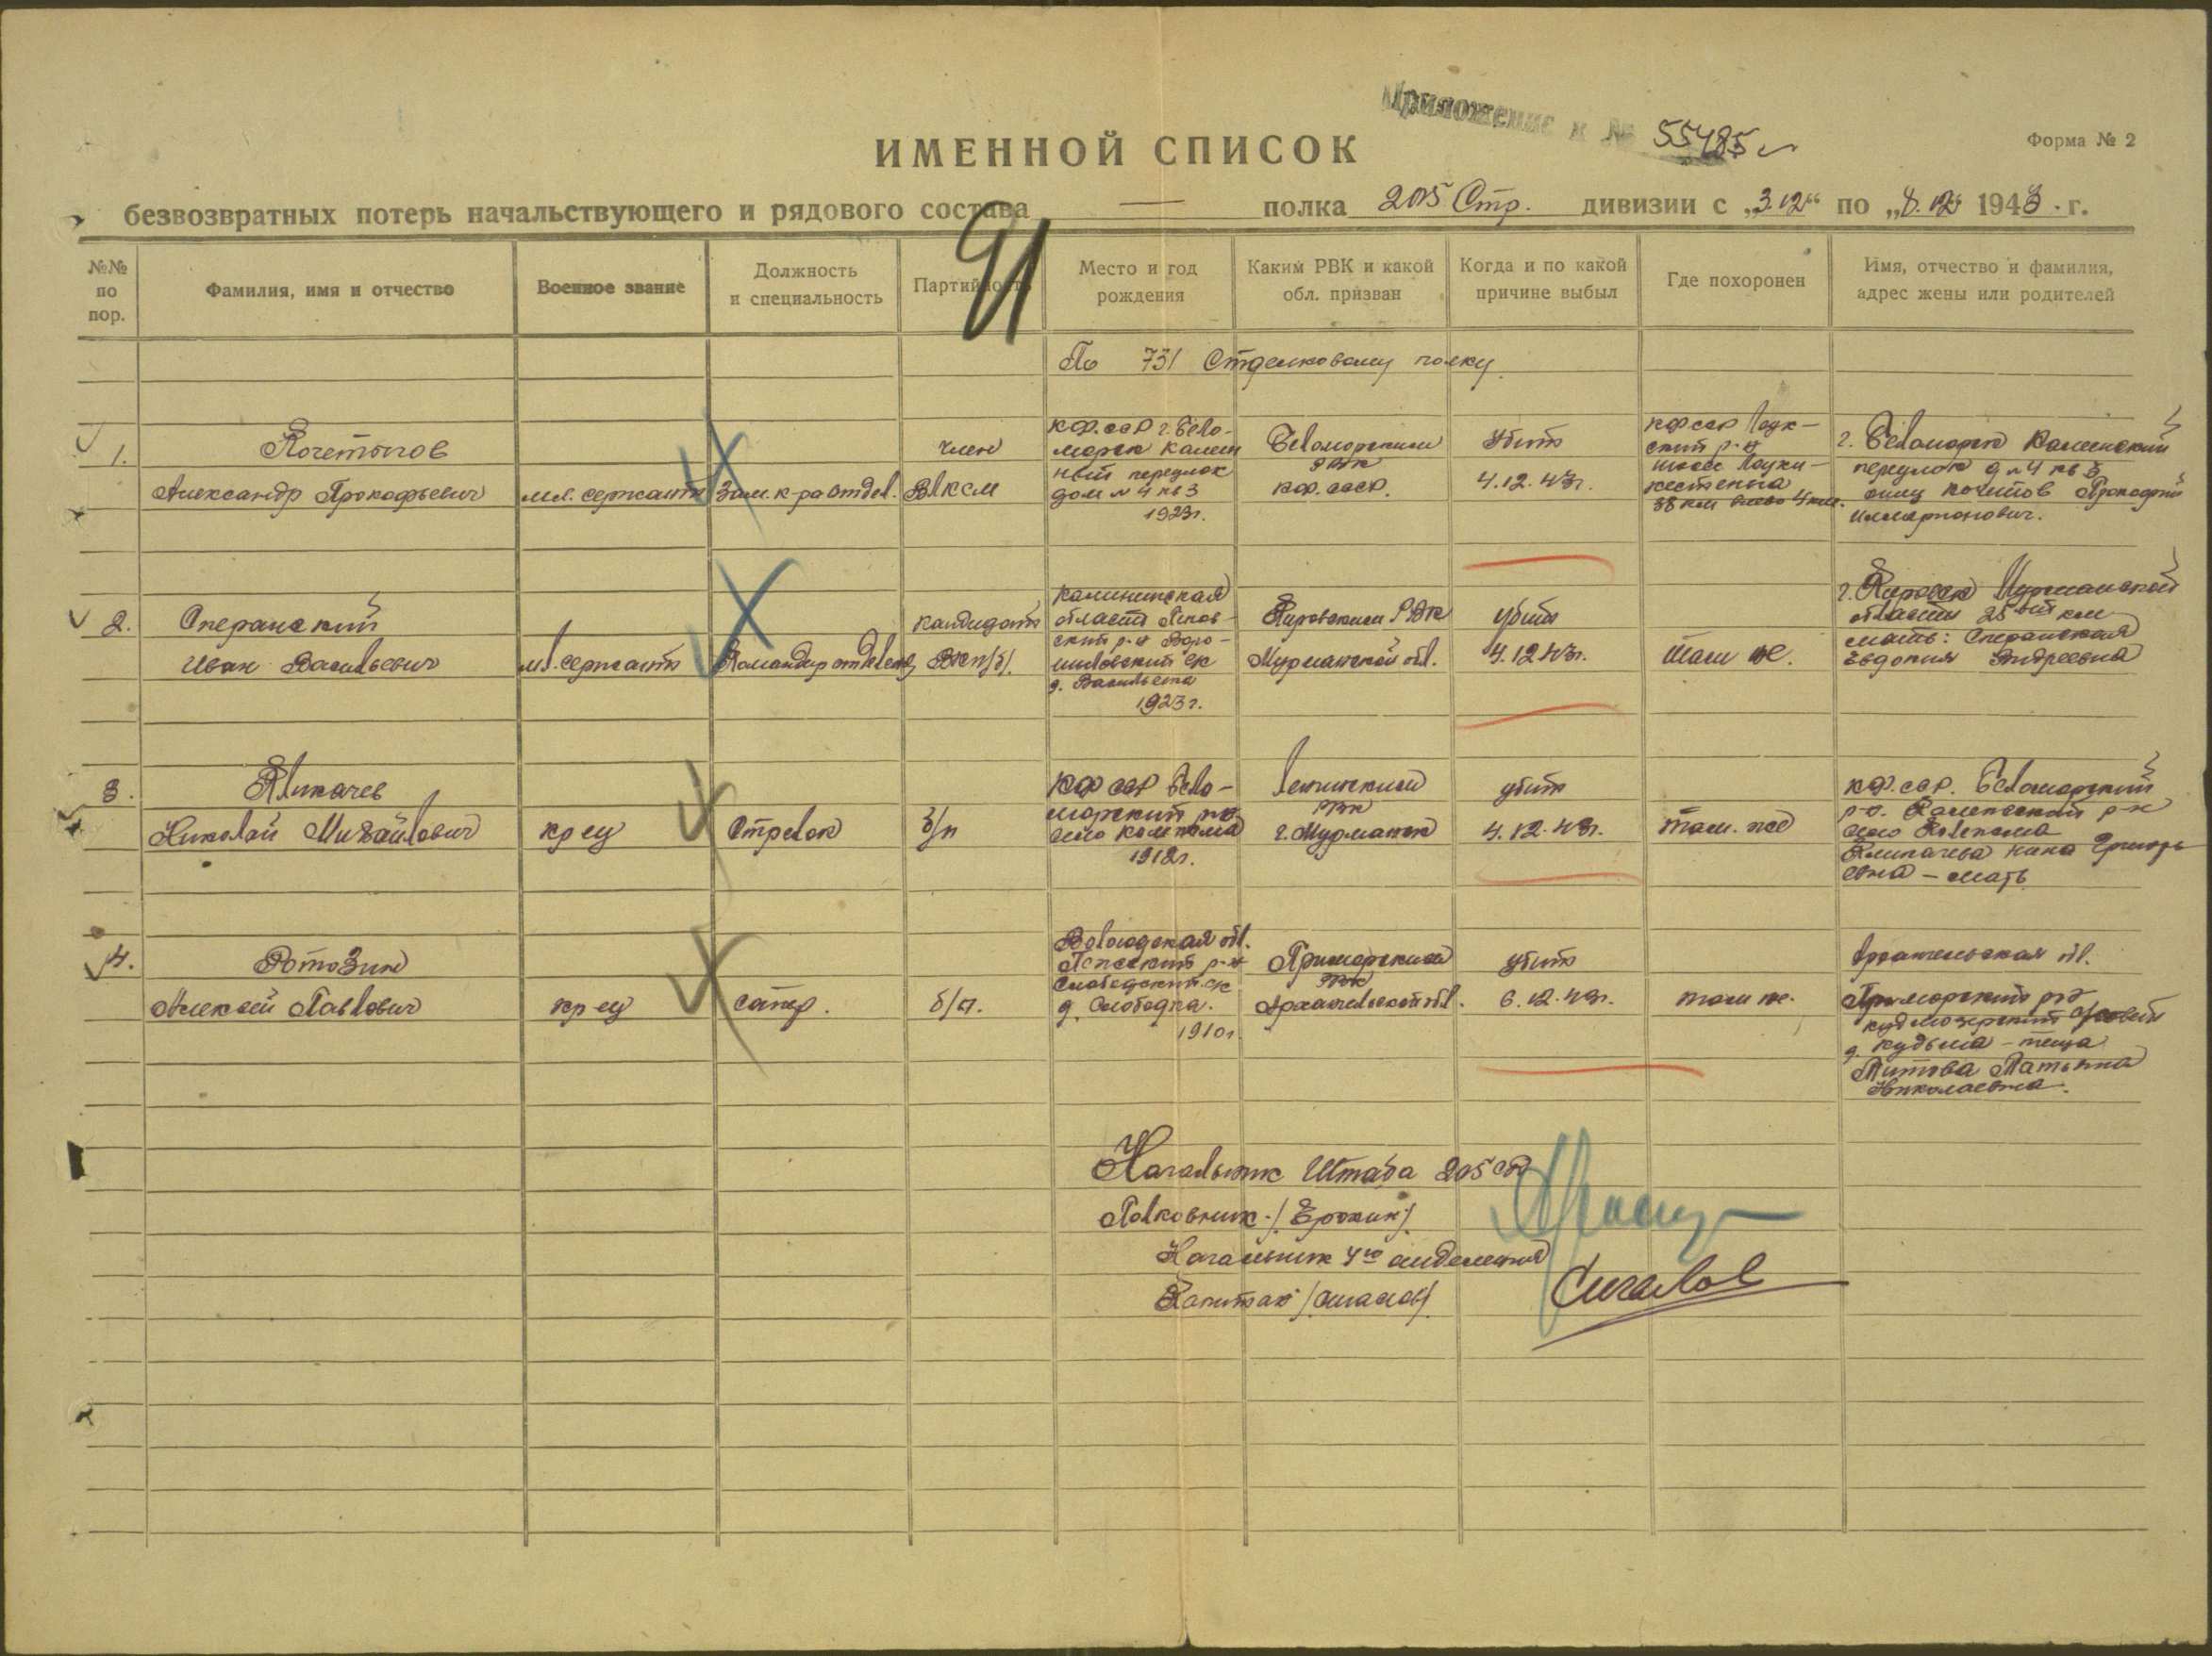 Приложение к № 55485
ИМЕННОЙ СПИСОК
Форма № 2
безвозвратных потерь начальствующего и рядового состава — полка 205 Стр. дивизии с „3.12“ по „8.12“ 1943 г.
№№ по пор.
Фамилия, имя и отчество
Военное звание
Должность и специальность
Партийность
Место и год рождения
Каким РВК и какой обл. призван
Когда и по какой причине выбыл
Где похоронен
Имя, отчество и фамилия, адрес жены или родителей
По 731 Стрелковому полку
1.
Александр Прокофьевич
мл. сержант
Зам. к-ра отдел.
член
ВЛКСМ
КФ.ССР г. Бело-
морск Камен
ный переулок
дом № 4 кв 3
1923г.
Беломорским
РВК
КФ.ССР.
Убит
4.12.43г.
КФССР Лоух-
ский р-н
шоссе Лоухи-
Кестеньга
38 км влево 4 км.
г. Беломорск Каменский
переулок д № 4 кв 3
отец Прокофий
Илларионович.
2.
Сперанский
Иван Васильевич
мл. сержант
Командир отделен.
кандидат
ВКП/б/.
Калининская
область
1923г.
Кировским РВК
Мурманской обл.
убит
4.12.43г.
Там же.
г. Кировск Мурманской
области 25 км
мать: Сперанская
Евдокия Андреевна
3.
Николай Михайлович
кр-ец
Стрелок
б/п
КФ ССР Бело-
морский
село Колежма
1918г.
Ленинским
РВК
г. Мурманск
убит
4.12.43г.
там же
КФ.ССР. Беломорский
р-н
село Колежма
Нина Григорь
евна - мать
4.
Алексей Павлович
кр-ец
сапер.
б/п.
Вологодская обл.
д. Слободка.
1910г.
Приморским
РВК
Архангельской обл.
убит
6.12.43г.
там же.
Архангельская обл.
Приморский
д. Кудьма - теща
Титова Татьяна
Николаевна.
Начальник Штаба 205 СД
Полковник /Ерохин/
Начальник 4го отделения
Капитан /Сигалов/
Сигалов